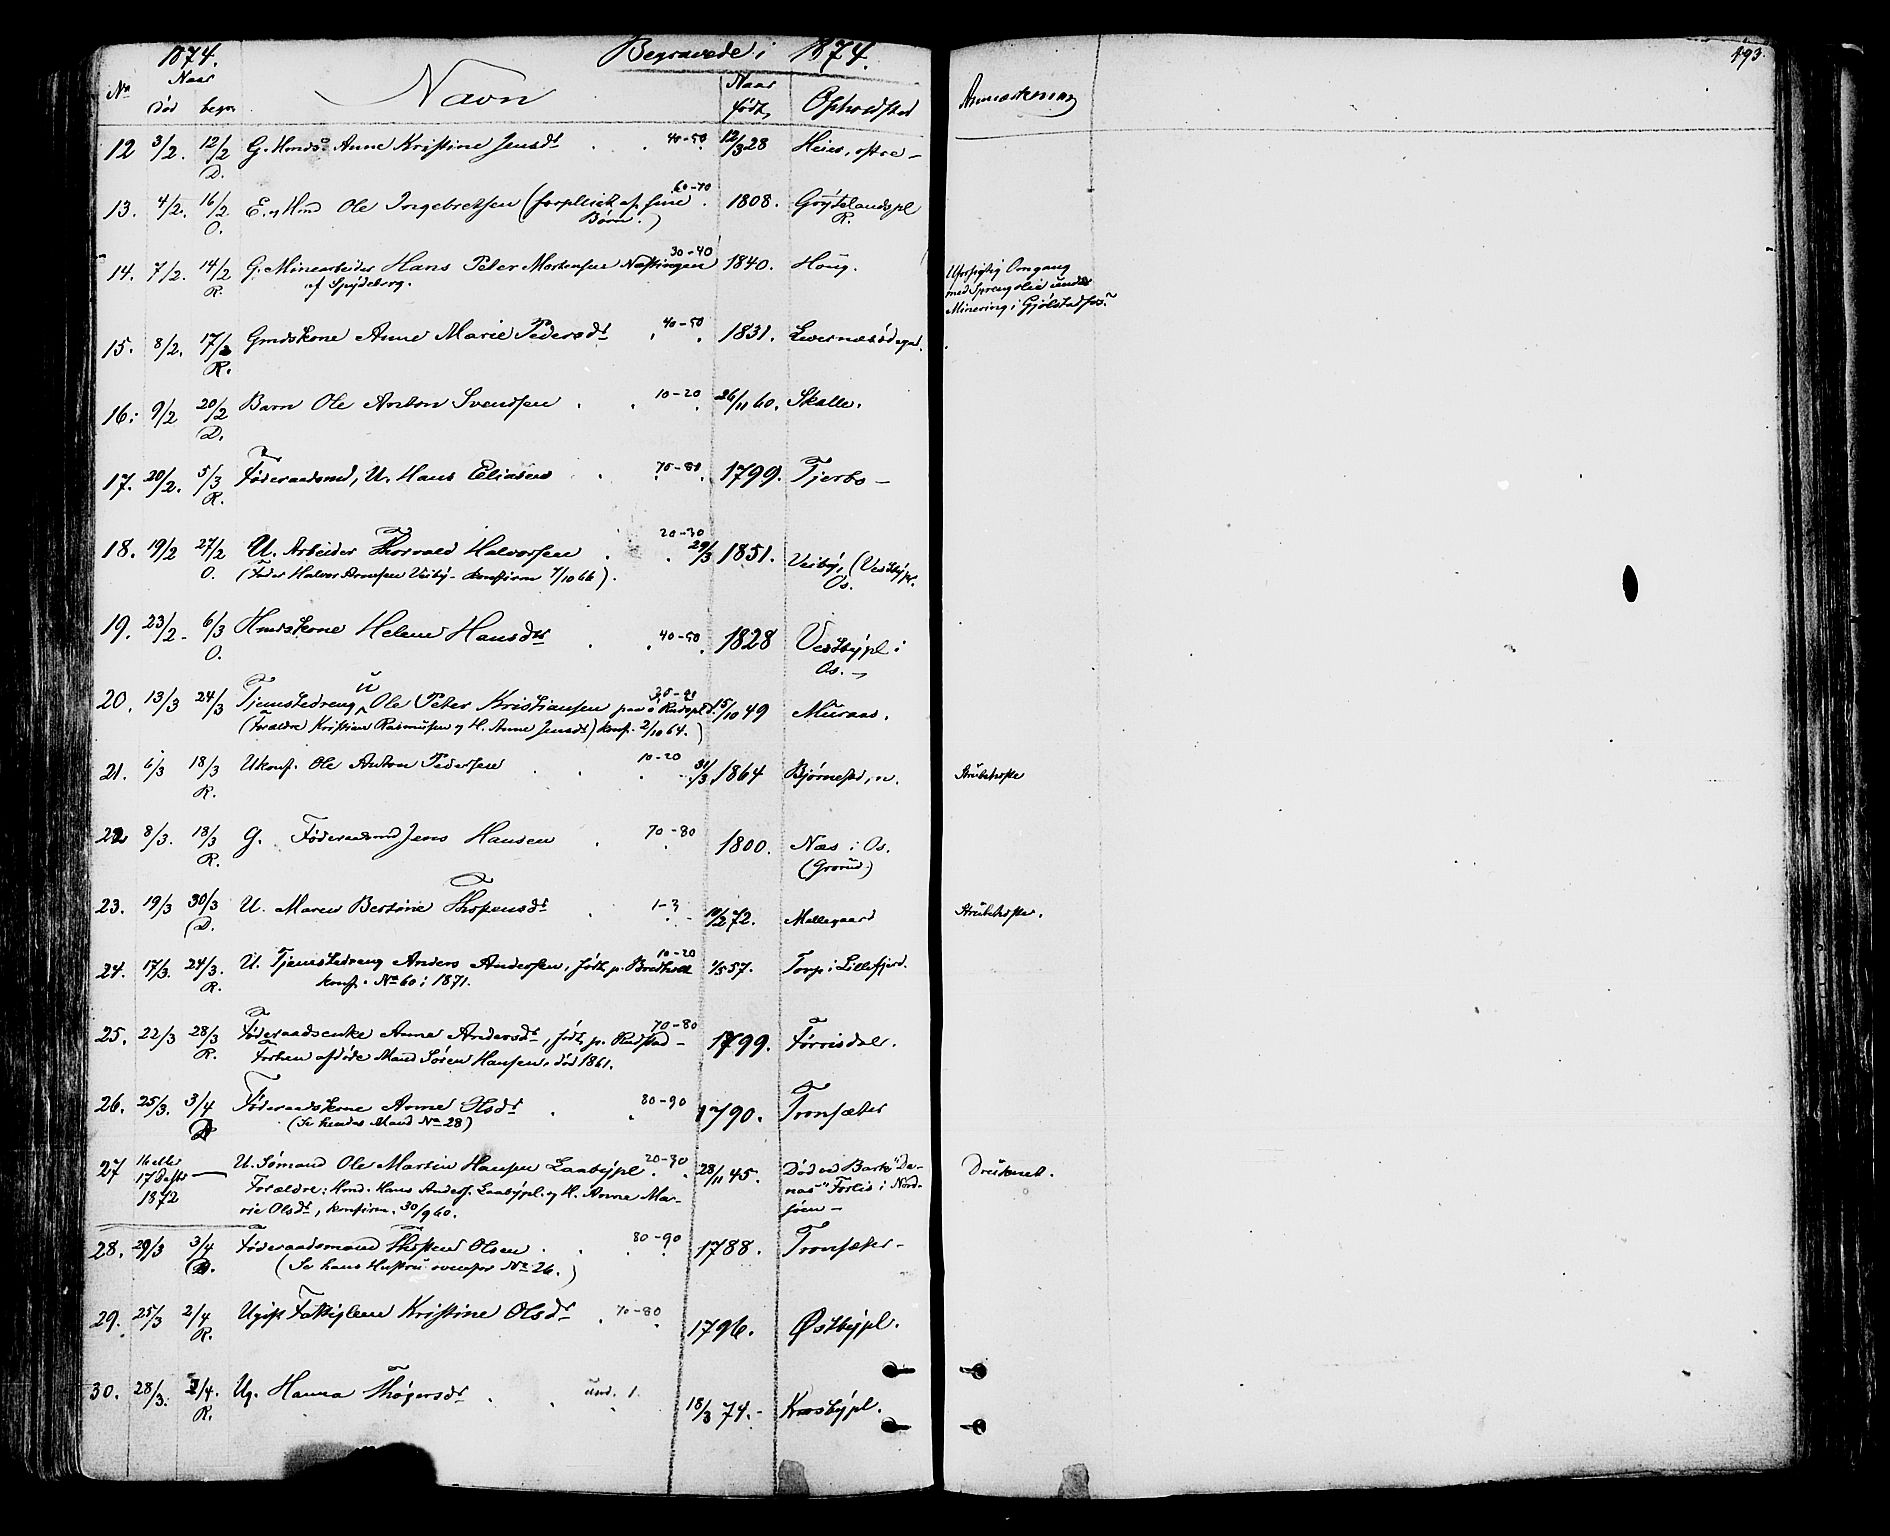 1874. Begravede i 1874. 493.
No Naar Død begr. Navn Naar født Opholdsted Anmærkning
12 3/2. 12/2 D. G. Hmds. Anne Kristine Jensdr 40-50 12/3 28 Heier, østre -
13. 4/2. 16/2 O. E. og Hmd Ole Ingebretsen (forpleiet af sine 60-70 1808. Grytelandspl R.
Børn.)
14. 7/2. 14/2 R. G. Minearbeider Hans Peter Mortensen 30-40 1840. Houg. Uforsigtig Omgang
af Spydeberg. med Sprengolie under
Minering i Gjølstadfos.
15. 8/2. 17/2 R. Gmdskone Anne Marie Pedersdr 40-50 1831.
16. 9/2 20/2 D. Barn Ole Anton Svendsen 10-20 26/11 60. Skalle.
17. 20/2. 5/3 R. Føderaadsmd, U. Hans Eliasen 70-80 1799. Tjerbo -
18. 19/2 27/2 O. U. Arbeider Thorvald Halvorsen 20-30 29/3 1851. Veiby, (Vestbypl.
(Fader Halvor Arnesen Veiby - konfirm 7/10 66). Os.
19. 23/2 - 6/3 O. Hmdskone Helene Hansdr 40-50 1828 Vestbypl i
Os. -
20. 13/3 24/3 Tjenestedreng U Ole Peter Kristiansen 15/10 49 Muraas.
(Forældre Kristian Rasmussen og H. Anne Jensdr) konf. 2/10 64.)
21. 6/3 18/3 R. Ukonf. Ole Anton Pedersen 10-20 31/3 1864 Bjørnestd, n. Strubehoste
22 8/3. 18/3 R. G. Føderaadsmd Jens Hansen 70-80 1800. Næs i Os.
(Grorud)
23. 19/3 30/3 D. U. Maren Bertine Thostensdr 1-3 10/2 72. Mellegaard Strubehoste.
24. 17/3. 24/3. R. U. Tjenestedreng Anders Andersen, født p. Bredholt 10-20 1/5 57. Torp i Lillefjerd.
konf. No 60 i 1871.
25. 22/3 28/3 R. Føderaadsenke Anne Andersdr, født p. Rudstad - 70-80 1799. Førrisdal.
Forhen afdøde Mand Søren Hansen, død 1861.
26. 25/3. 3/4 D Føderaadskone Anne Olsdr 80-90 1790. Tronsæter
(Se hendes Mand No 28)
27 16 eller 17de 1872 — U. Sømand Ole Martin Hansen Laabypl 20-30 28/11 45. Død ved Bark "Da- Druknet.
Forældre: Hmd. Hans Anders. Laabypl. og H. Anne Ma- nas" Forlis i Nord-
rie Olsdr, konfirm. 30/9 60. søen -
28. 29/3 3/4 D. Føderaadsmand Thosten Olsen 80-90 1788. Tronsæter -
(Se hans Hustru ovenfor No 26.)
29. 25/3 2/4 R. Ugift Fattiglem Kristine Olsdr 70-80 1796. Østbypl.
30. 28/3. 2/4. R. Ug. Hanna Thøgersdr und. 1. 18/3 74. - Kæsbypl.